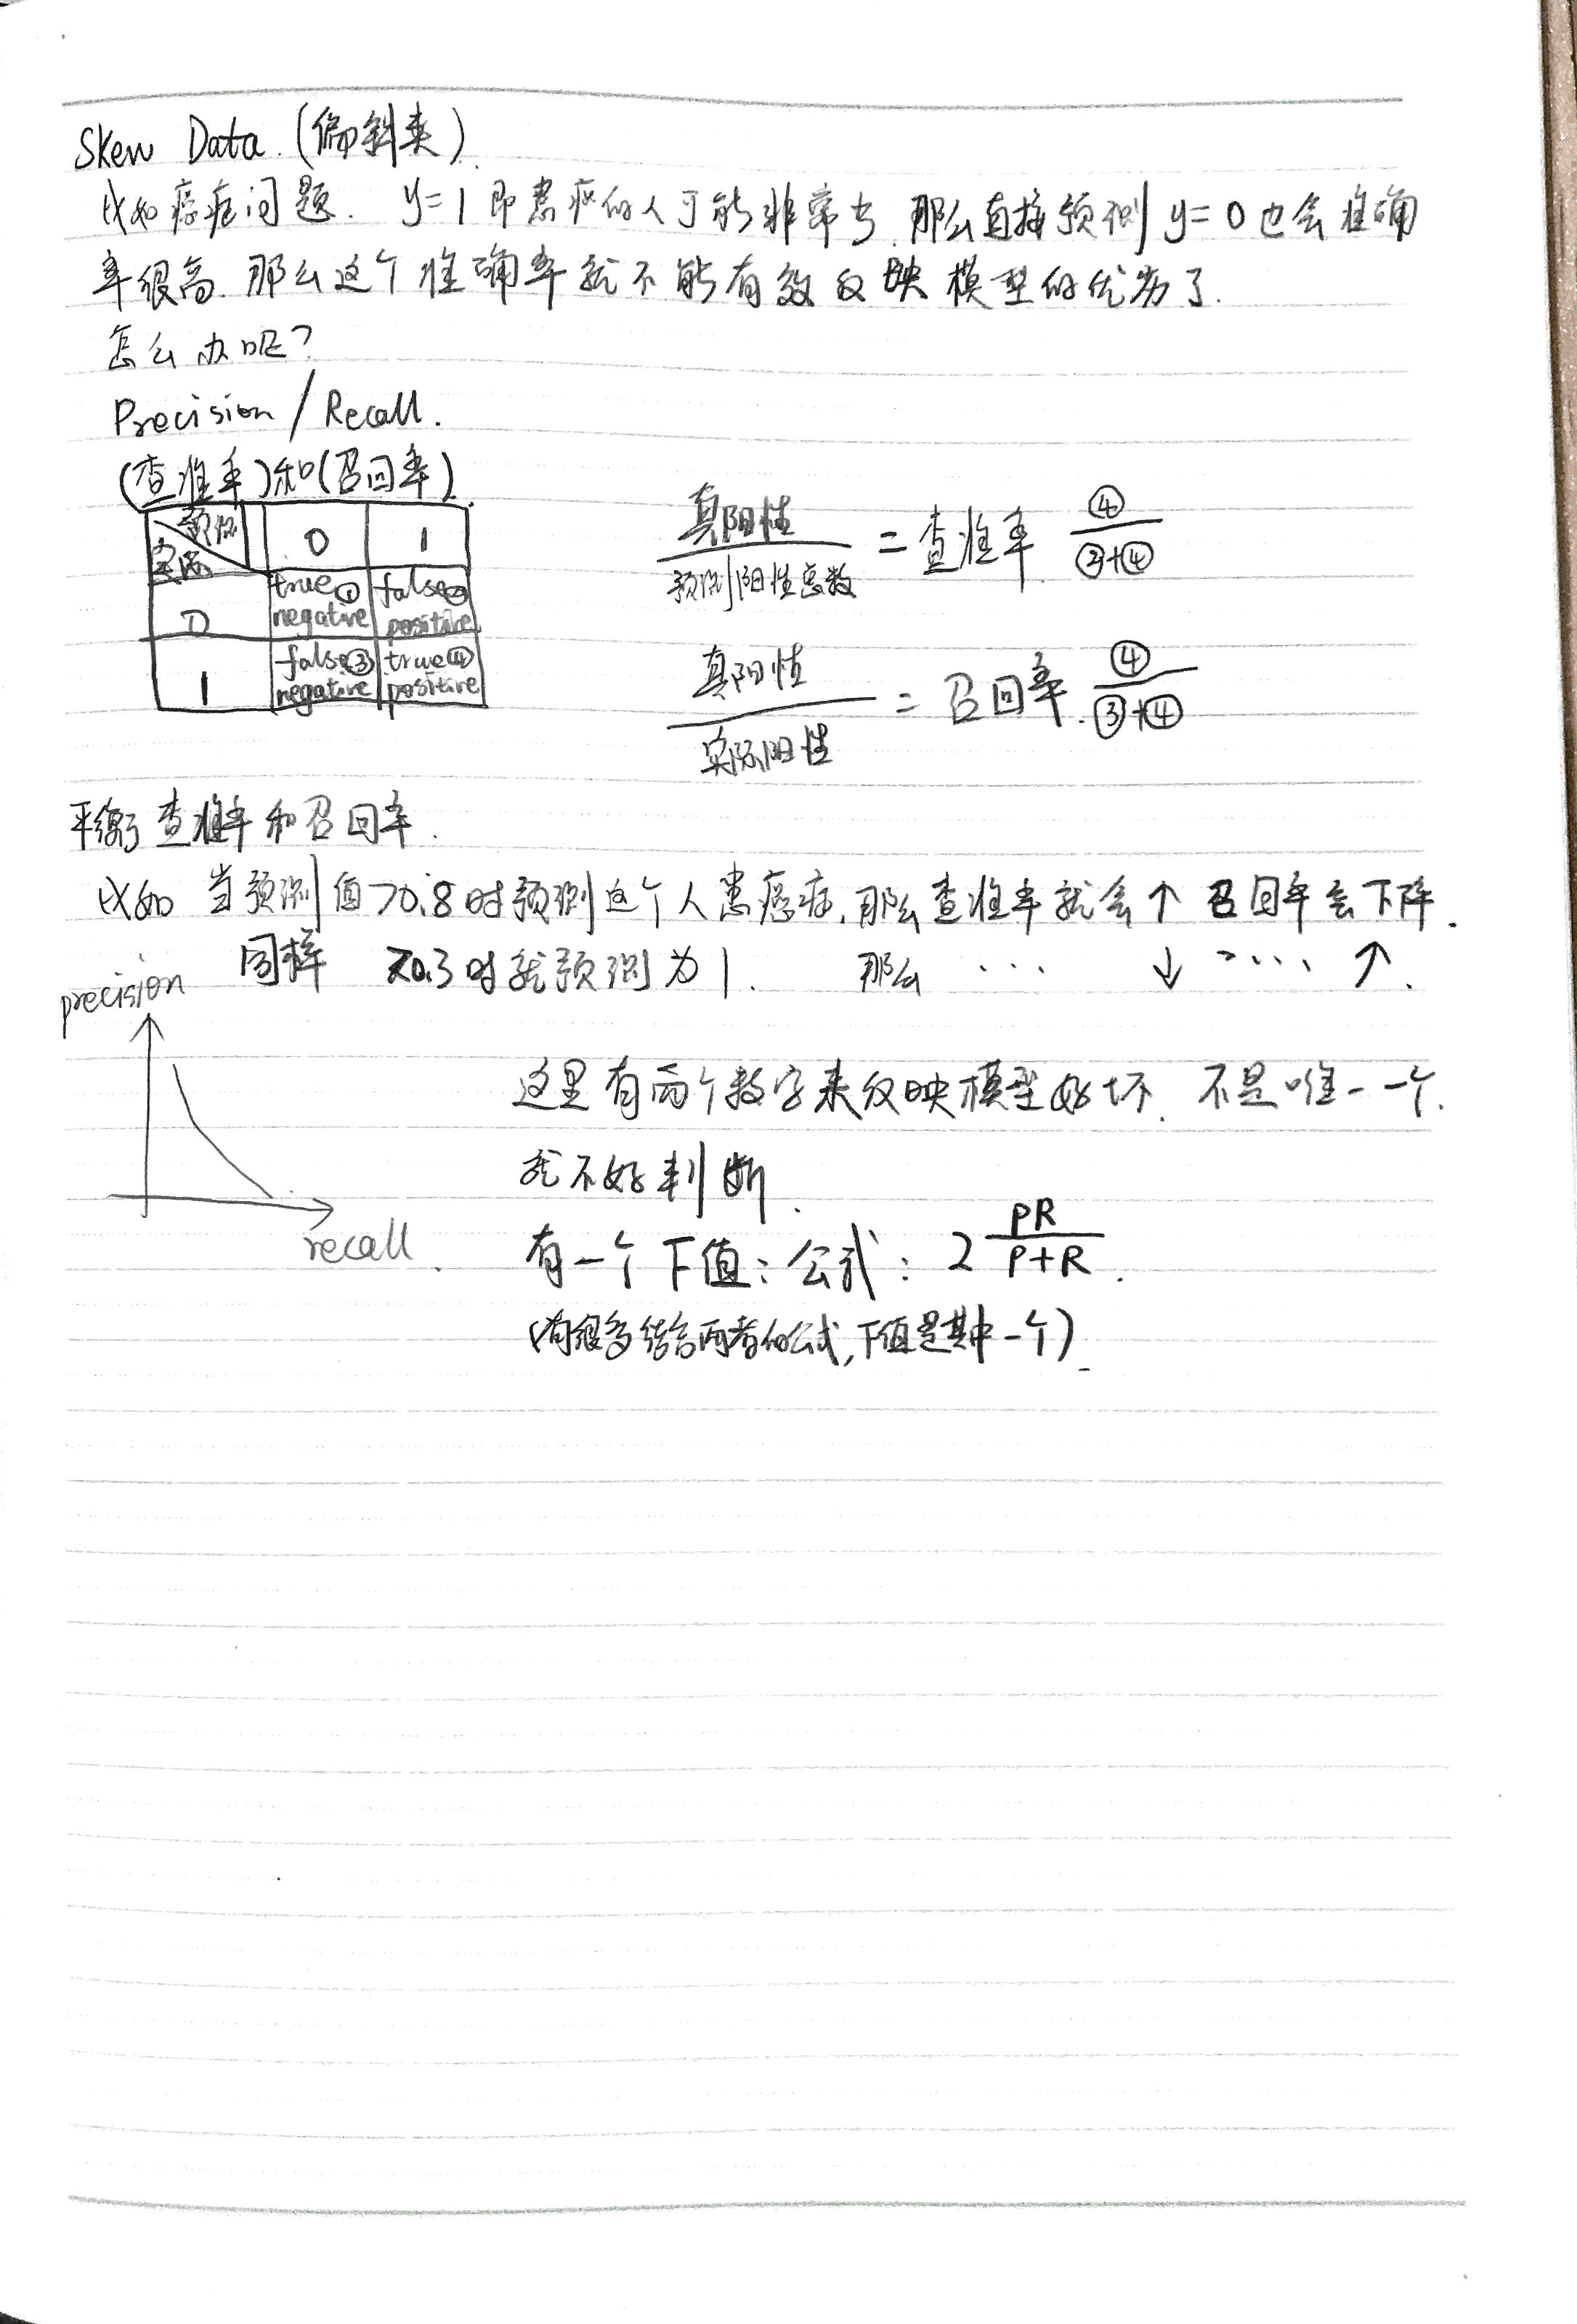 Skew Data.(偏斜类).
比如癌症问题. y=1即患癌的人可能非常少.那么直接预测y=0也会准确
率很高.那么这个准确率就不能有效反映模型的优劣了.
怎么办呢?
Precision/Recall.
(查准率)和(召回率).
预测 0 1
实际
0 true① negative false② positive
1 false③ negative true④ positive
真阳性/预测阳性总数 = 查准率 ④/③+④
真阳性/实际阳性 = 召回率.④/③+④
平衡查准率和召回率.
比如 当预测值>0.8时预测这个人患癌症,那么查准率就会↑ 召回率会下降.
同样 >0.3时就预测为1. 那么 ... ↓ .... ↑.
precision
recall.
这里有两个数字来反映模型好坏.不是唯一一个.
就不好判断.
有一个F值:公式: 2 PR/P+R.
(有很多结合两者的公式,F值是其中一个).